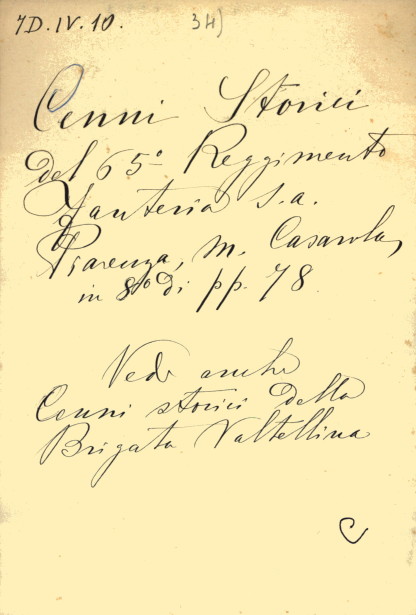 7D.IV.10. 34)
Cenni Storici
del 65º Reggimento
Fanteria s.a.
Piacenza, M. Casarola,
in 8º di pp. 78
Vedi anche
Cenni storici della
Brigata Valtellina
C